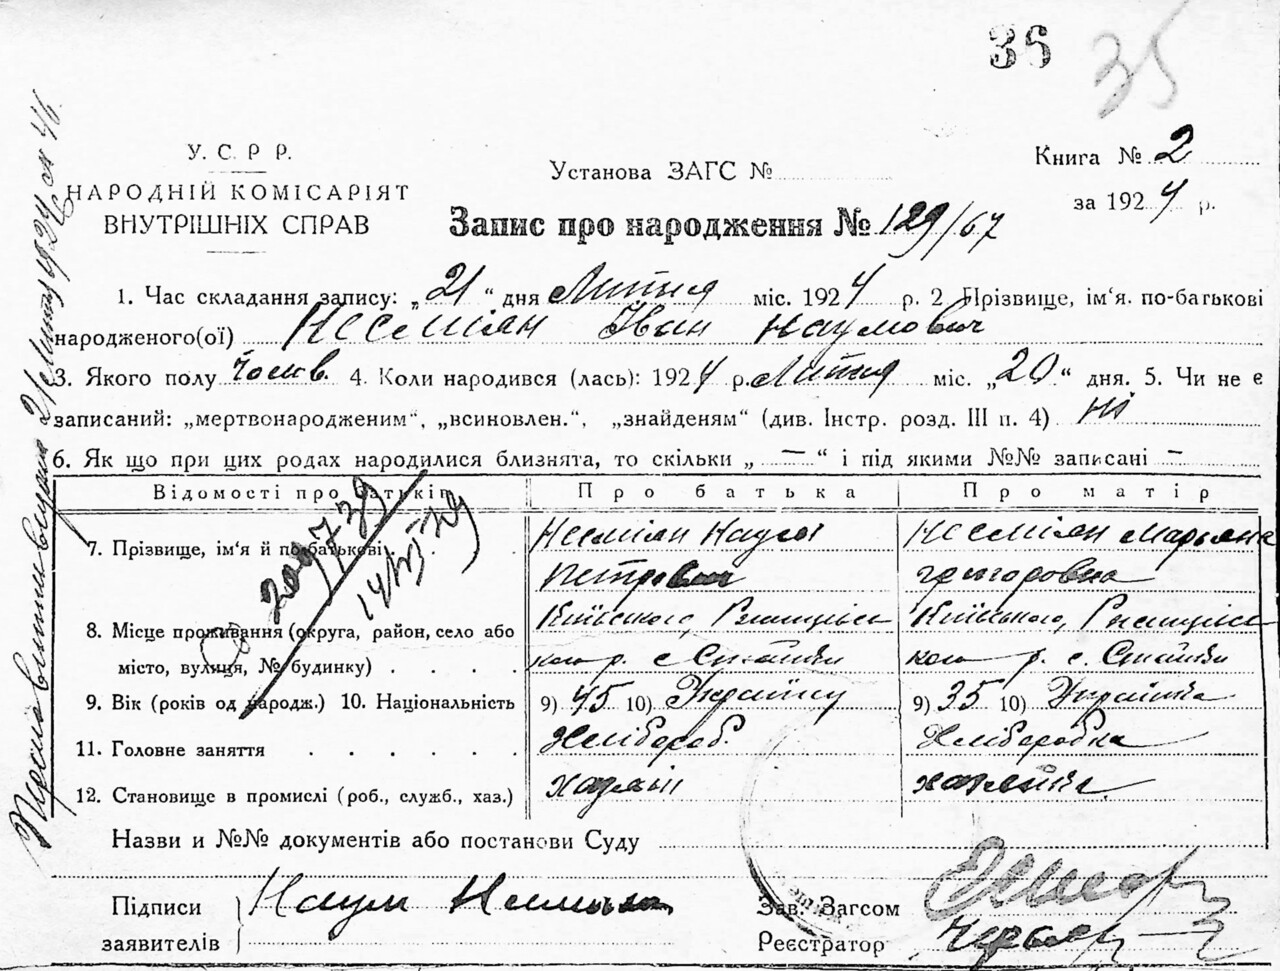 36 35
У. С. Р Р.
НАРОДНІЙ КОМІСАРІЯТ
ВНУТРІШНІХ СПРАВ
Установа ЗАГС №
Книга № 2
за 1924 р.
Запис про народження № 129/67
1. Час складання запису: „21“ дня Лютня міс. 1924 р. 2 Прізвище, ім'я. по-батькові
народженого(ої) Несміян Іван Наумович
3. Якого полу чолов. 4. Коли народився (лась): 1924 р. Лютня міс. „20“ дня. 5. Чи не є
записаний: „мертвонародженим“, „всиновлен.“, „знайденям“ (див. Інстр. розд. III п. 4) ні
6. Як що при цих родах народилися близнята, то скільки „ — “ і під якими №№ записані —
Відомості про батьків Про батька Про матір
7. Прізвище, ім'я й по-батькові Несміян Наум Несміян Марьяна
Петрович Григоровна
8. Місце проживання (округа, район, село або Київського, Київського,
місто, вулиця, № будинку) р. с Стайки р. с. Стайки
9. Вік (років од народж.) 10. Національність 9) 45 10) Українц 9) 35 10) Українка
11. Головне заняття Хлібороб. Хліборобка
12. Становище в промислі (роб., служб., хаз.) хазяїн хазяйка
Назви и №№ документів або постанови Суду
Підписи Наум Несмиян Зав. Загсом
заявителів Реєстратор